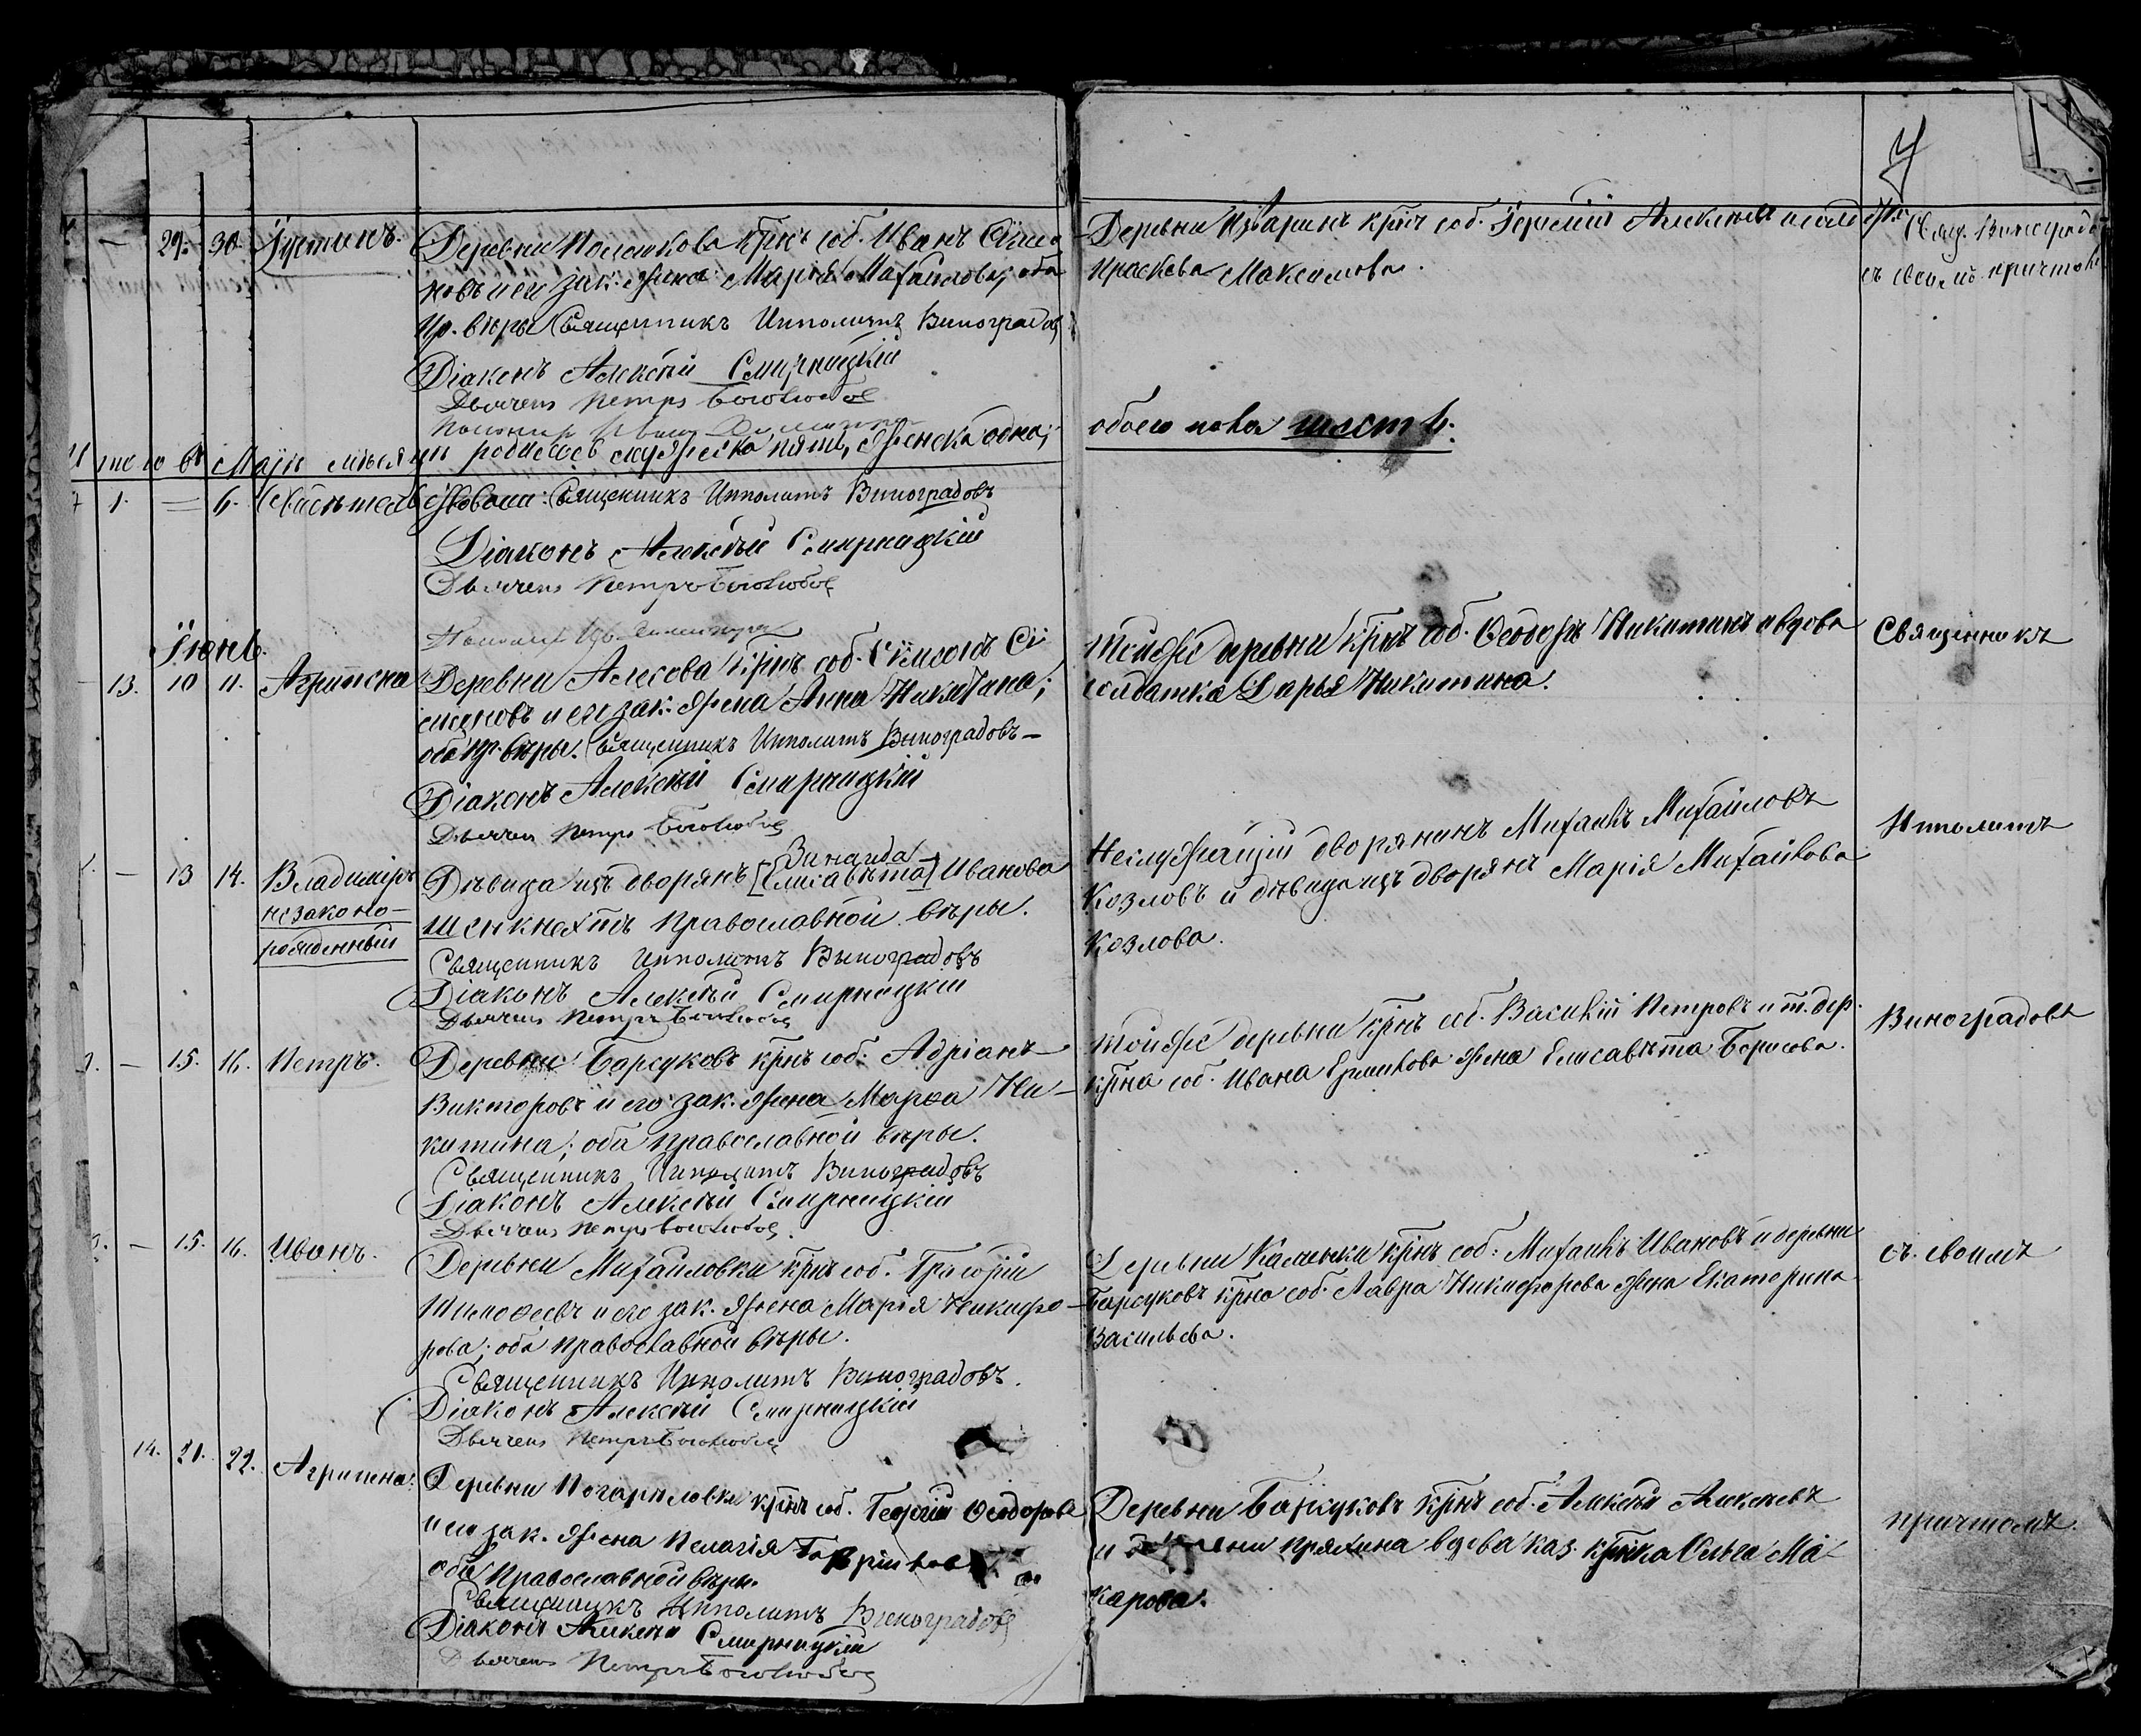 7
29. 30. Іустинъ. Деревни Полешкова крнъ соб. Иванъ
новъ и его зак. жена Марія Михаилова; оба
пр. вѣры Священникъ Ипполитъ Виноградовъ
Діаконъ Алексѣй Смирницкій
Дьячекъ Петръ Боголюбовъ
Деревни крнъ соб. Іеремій Алексѣевъ и солд. жена
Праскева Максимова.
Свящ. Виноградовъ
съ своимъ причтомъ
того въ Маіѣ мѣсяцѣ родилось мужеска пять, женска одна;
обоего пола шесть.
1. — 6. Свидѣтельствовали: Священникъ Ипполитъ Виноградовъ
Діаконъ Алексѣй Смирницкій
Дьячекъ Петръ Боголюбовъ
Іюнь.
13. 10 11. Агрипена Деревни Алесова крнъ соб. Сімеонъ Сі
меновъ и его зак. жена Анна Никитина;
оба пр. вѣры. Священникъ Ипполитъ Виноградовъ —
Діаконъ Алексѣй Смирницкій
Дьячекъ Петръ Боголюбовъ
Тойже деревни крнъ соб. Ѳеодоръ Никитинъ и вдова
солдатка Дарья Никитина.
Священникъ
— 13 14. Владиміръ
незаконо-
рожденный
Зинаида
Дѣвица изъ дворянъ [Елисавѣта] Иванова
Шенкнехтъ православной вѣры.
Священникъ Ипполитъ Виноградовъ
Діаконъ Алексѣй Смирницкій
Дьячекъ Петръ Боголюбовъ
Неслужащій дворянинъ Михаилъ Михайловъ
Козловъ и дѣвица изъ дворянъ Марія Михайлова
Козлова.
Ипполитъ
— 15. 16. Петръ. Деревни Барсуковъ крнъ соб: Адріанъ
Викторовъ и его зак. жена Марѳа Ни-
китина; оба православной вѣры.
Священникъ Ипполитъ Виноградовъ
Діаконъ Алексѣй Смирницкій
Дьячекъ Петръ Боголюбовъ.
Тойже деревни крнъ соб. Василій Петровъ и т. дер.
крна соб. Ивана Ермилова жена Елисавѣта Борисова.
Виноградовъ
— 15. 16. Иванъ. Деревни Михайловки крнъ соб. Григорій
Тимоѳеевъ и его зак. жена Марія Никифо-
рова; оба православной вѣры.
Священникъ Ипполитъ Виноградовъ.
Діаконъ Алексѣй Смирницкій
Дьячекъ Петръ Боголюбовъ
Деревни Каменки крнъ соб: Михаилъ Ивановъ и деревни
Барсуковъ крна соб. Лавра Никифорова жена Екатерина
Васильева.
съ своимъ
14. 21. 22. Агрипена. Деревни Погариловки крнъ соб. Георгій Ѳеодоровъ
и его зак. жена Пелагія
оба православной вѣры.
Священникъ Ипполитъ Виноградовъ
Діаконъ Алексѣй Смирницкій
Дьячекъ Петръ Боголюбовъ
Деревни Барсуковъ крнъ соб. Алексѣй Алексѣевъ
и деревни Пряхина вдова каз. крнка Ольга Ма-
карова.
причтомъ.